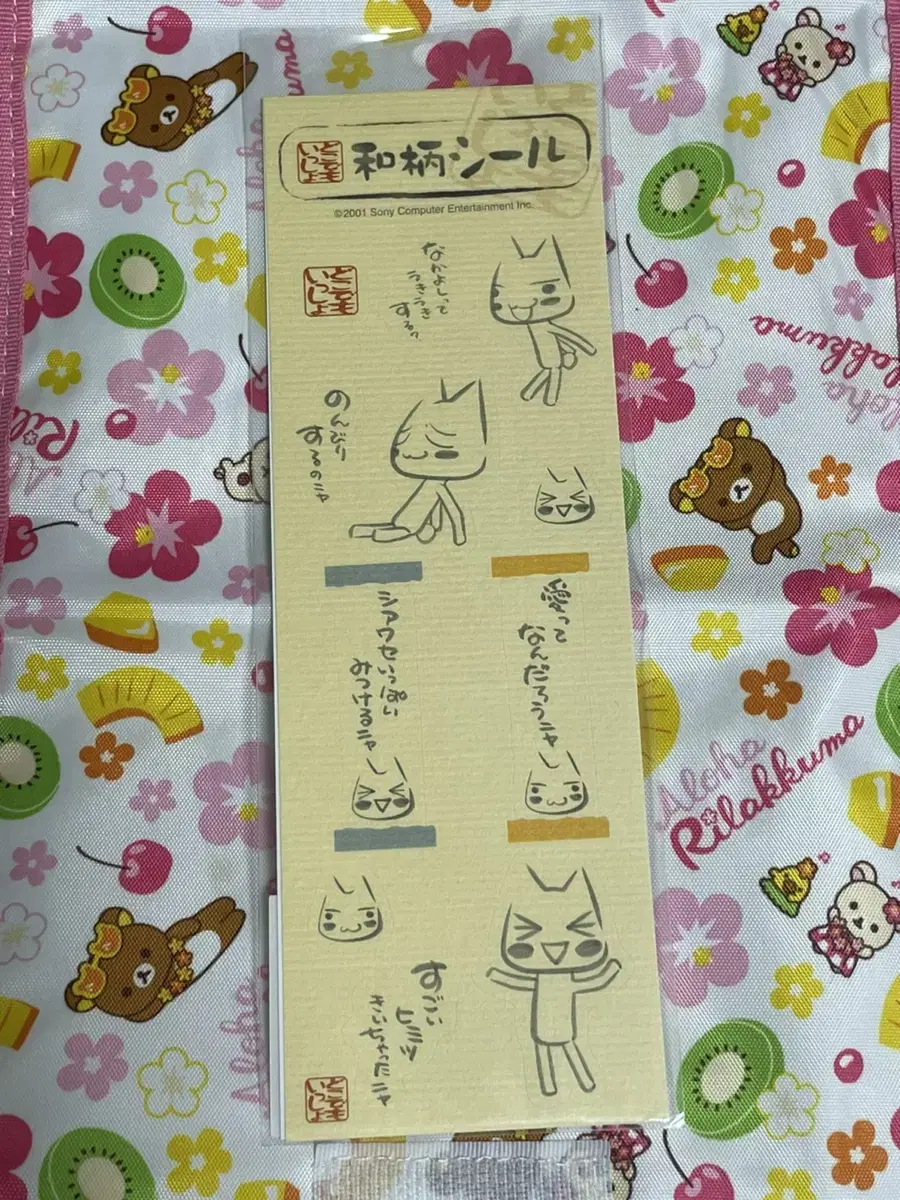 どこでもいっしょ
和柄シール
©2001 Sony Computer Entertainment Inc.
どこでもいっしょ
なかよしって
うきうき
する?
のんびり
するのニャ
愛って
なんだろうニャ
シアワセいっぱい
みつけるニャ
すごい
ヒミツ
きいちゃったニャ
どこでもいっしょ
Aloha
Rilakkuma
Aloha
Rilakkuma
Aloha
Aloha